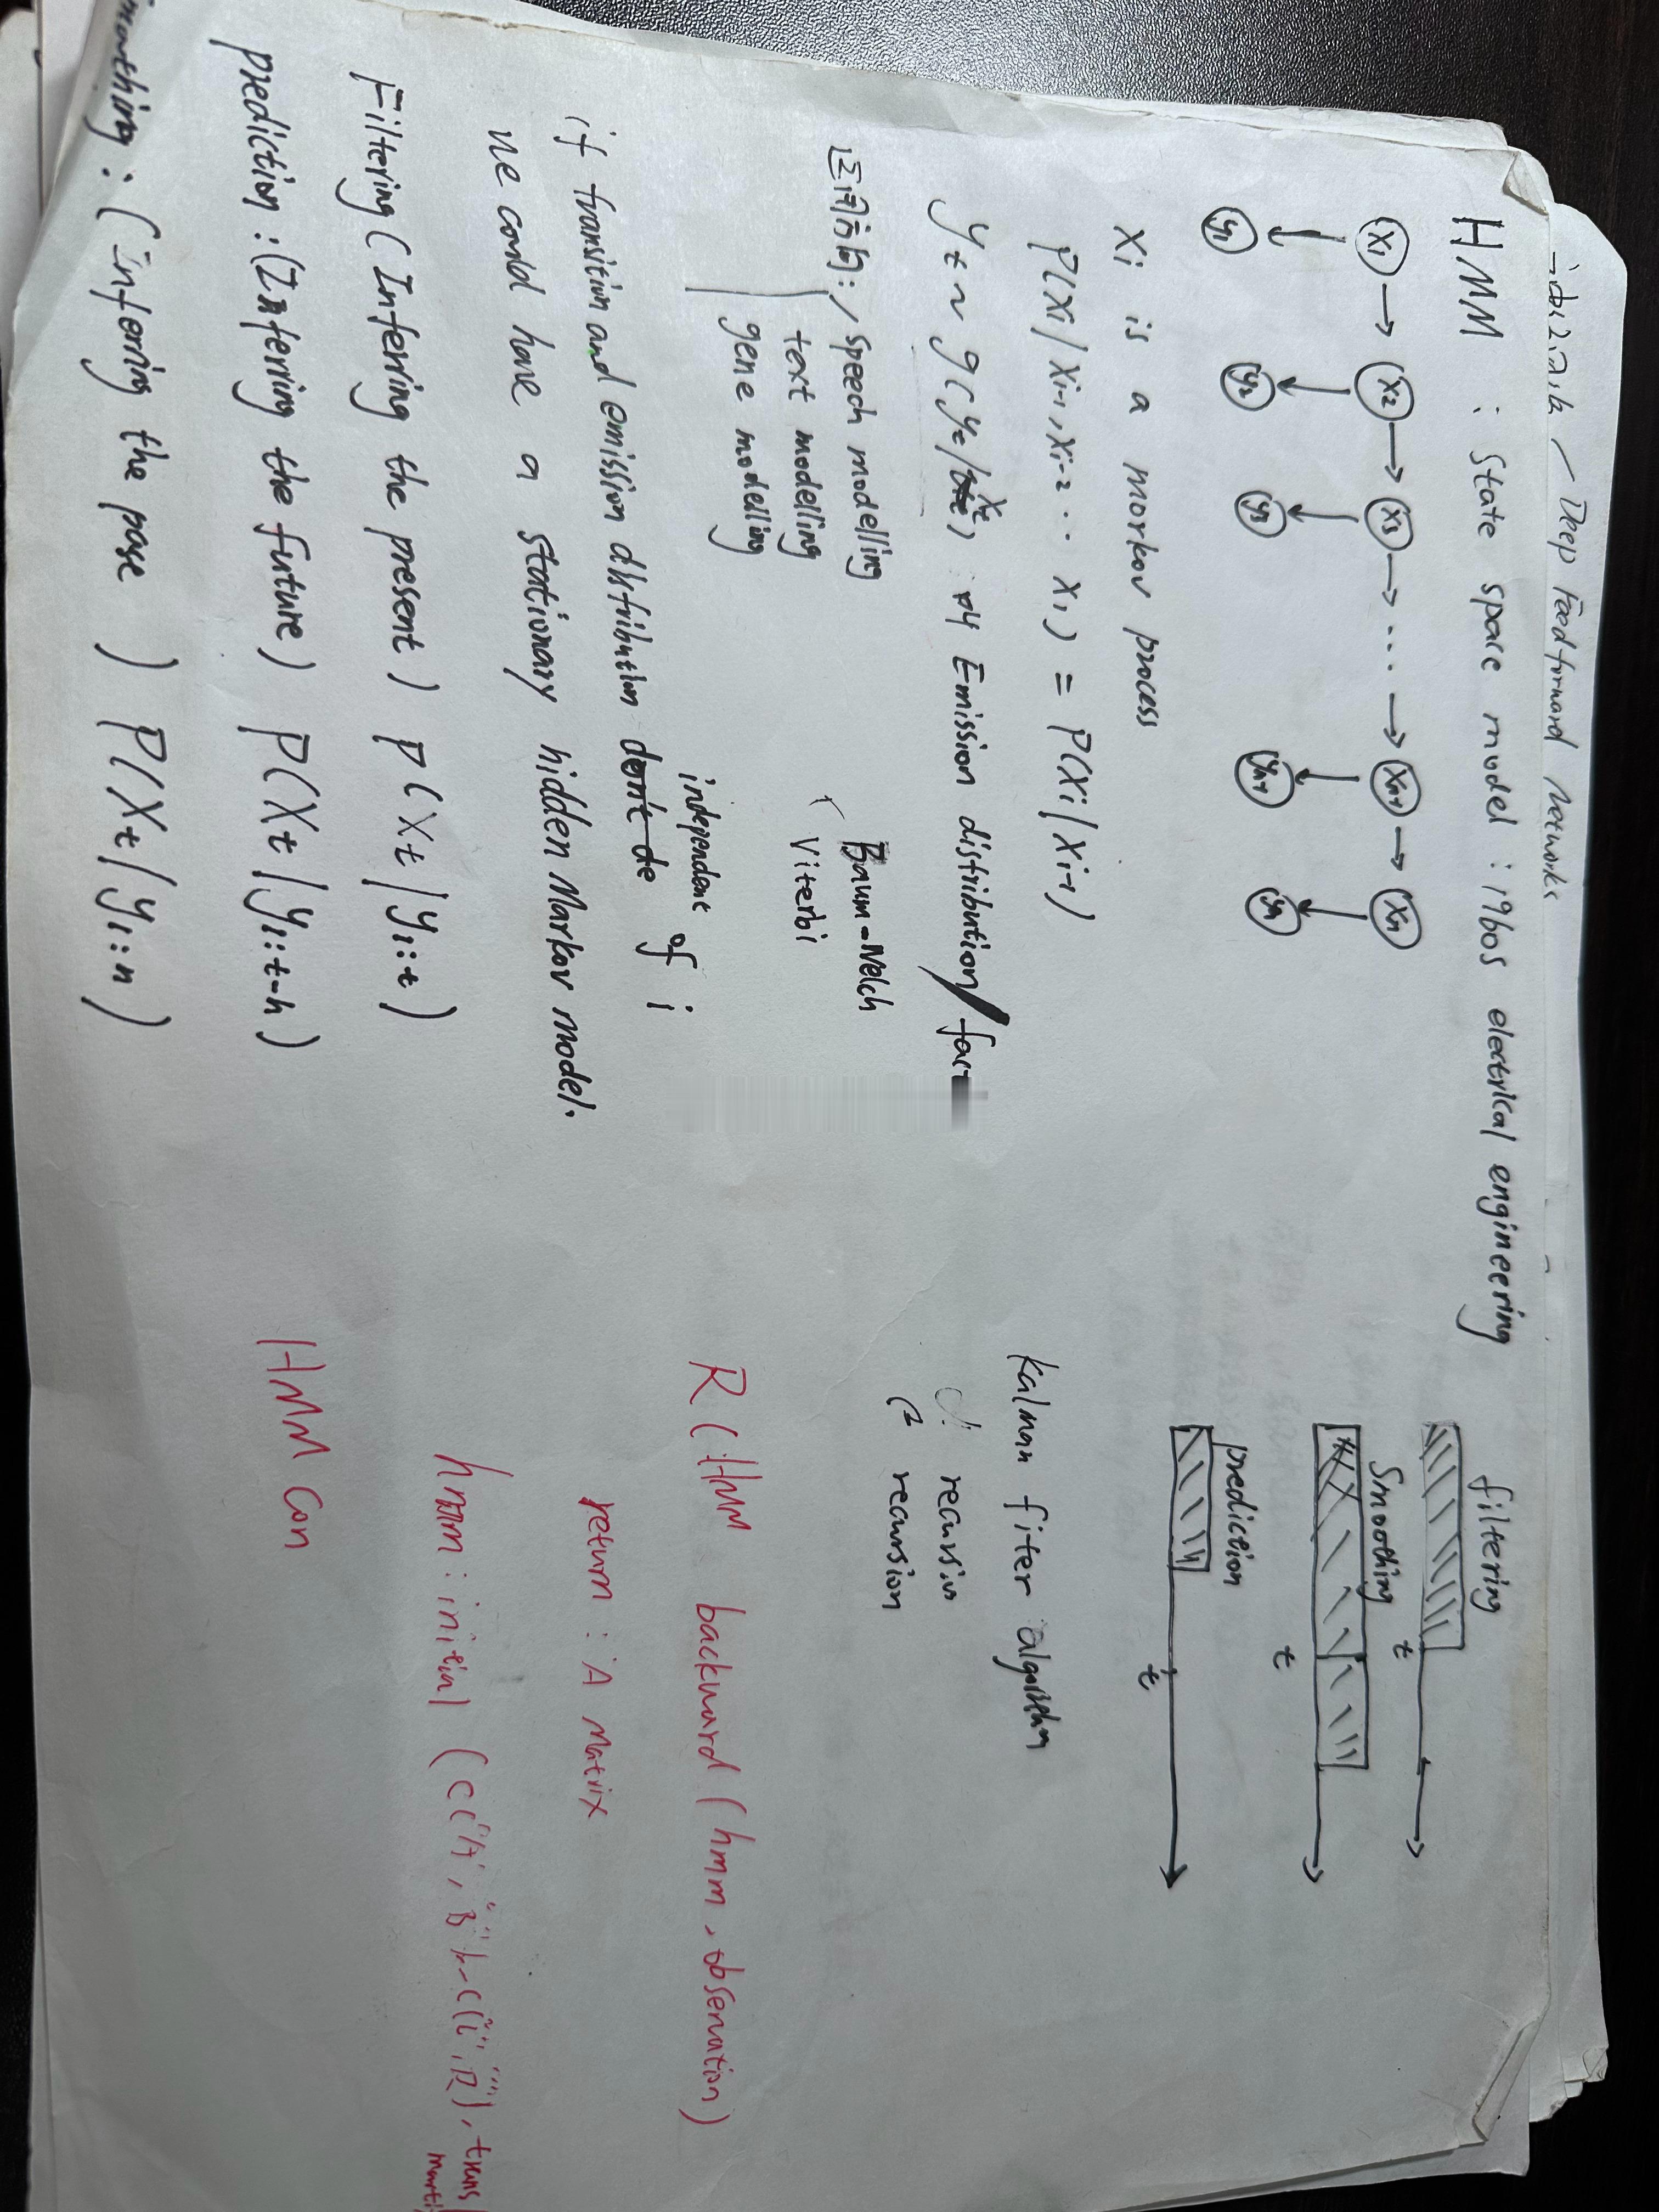 Deep Feedforward Networks
HMM : State space model : 1960s electrical engineering
X1 → X2 → X3 → ... → Xn-1 → Xn
y1 y2 y3 yn-1 yn
Xi is a morkov process
P(Xi | Xi-1, Xi-2 ... X1) = P(Xi | Xi-1)
yt ~ g(yt | xt) : Emission distribution / fact
speech modelling
text modelling
gene modelling
Baum-Welch
Viterbi
independent
if transition and emission distribution don't de of i
we could have a stationary hidden Markov model.
Filtering (Inferring the present) P(Xt | y1:t)
prediction : (Inferring the future) P(Xt | y1:t-h)
smoothing : (inferring the pase) P(Xt | y1:n)
filtering
t
Smoothing
t
prediction
t
kalman fiter algorithm
recursion
recursion
R (HMM backward (hmm, observation)
return : A Matrix
hmm : initial
HMM Con